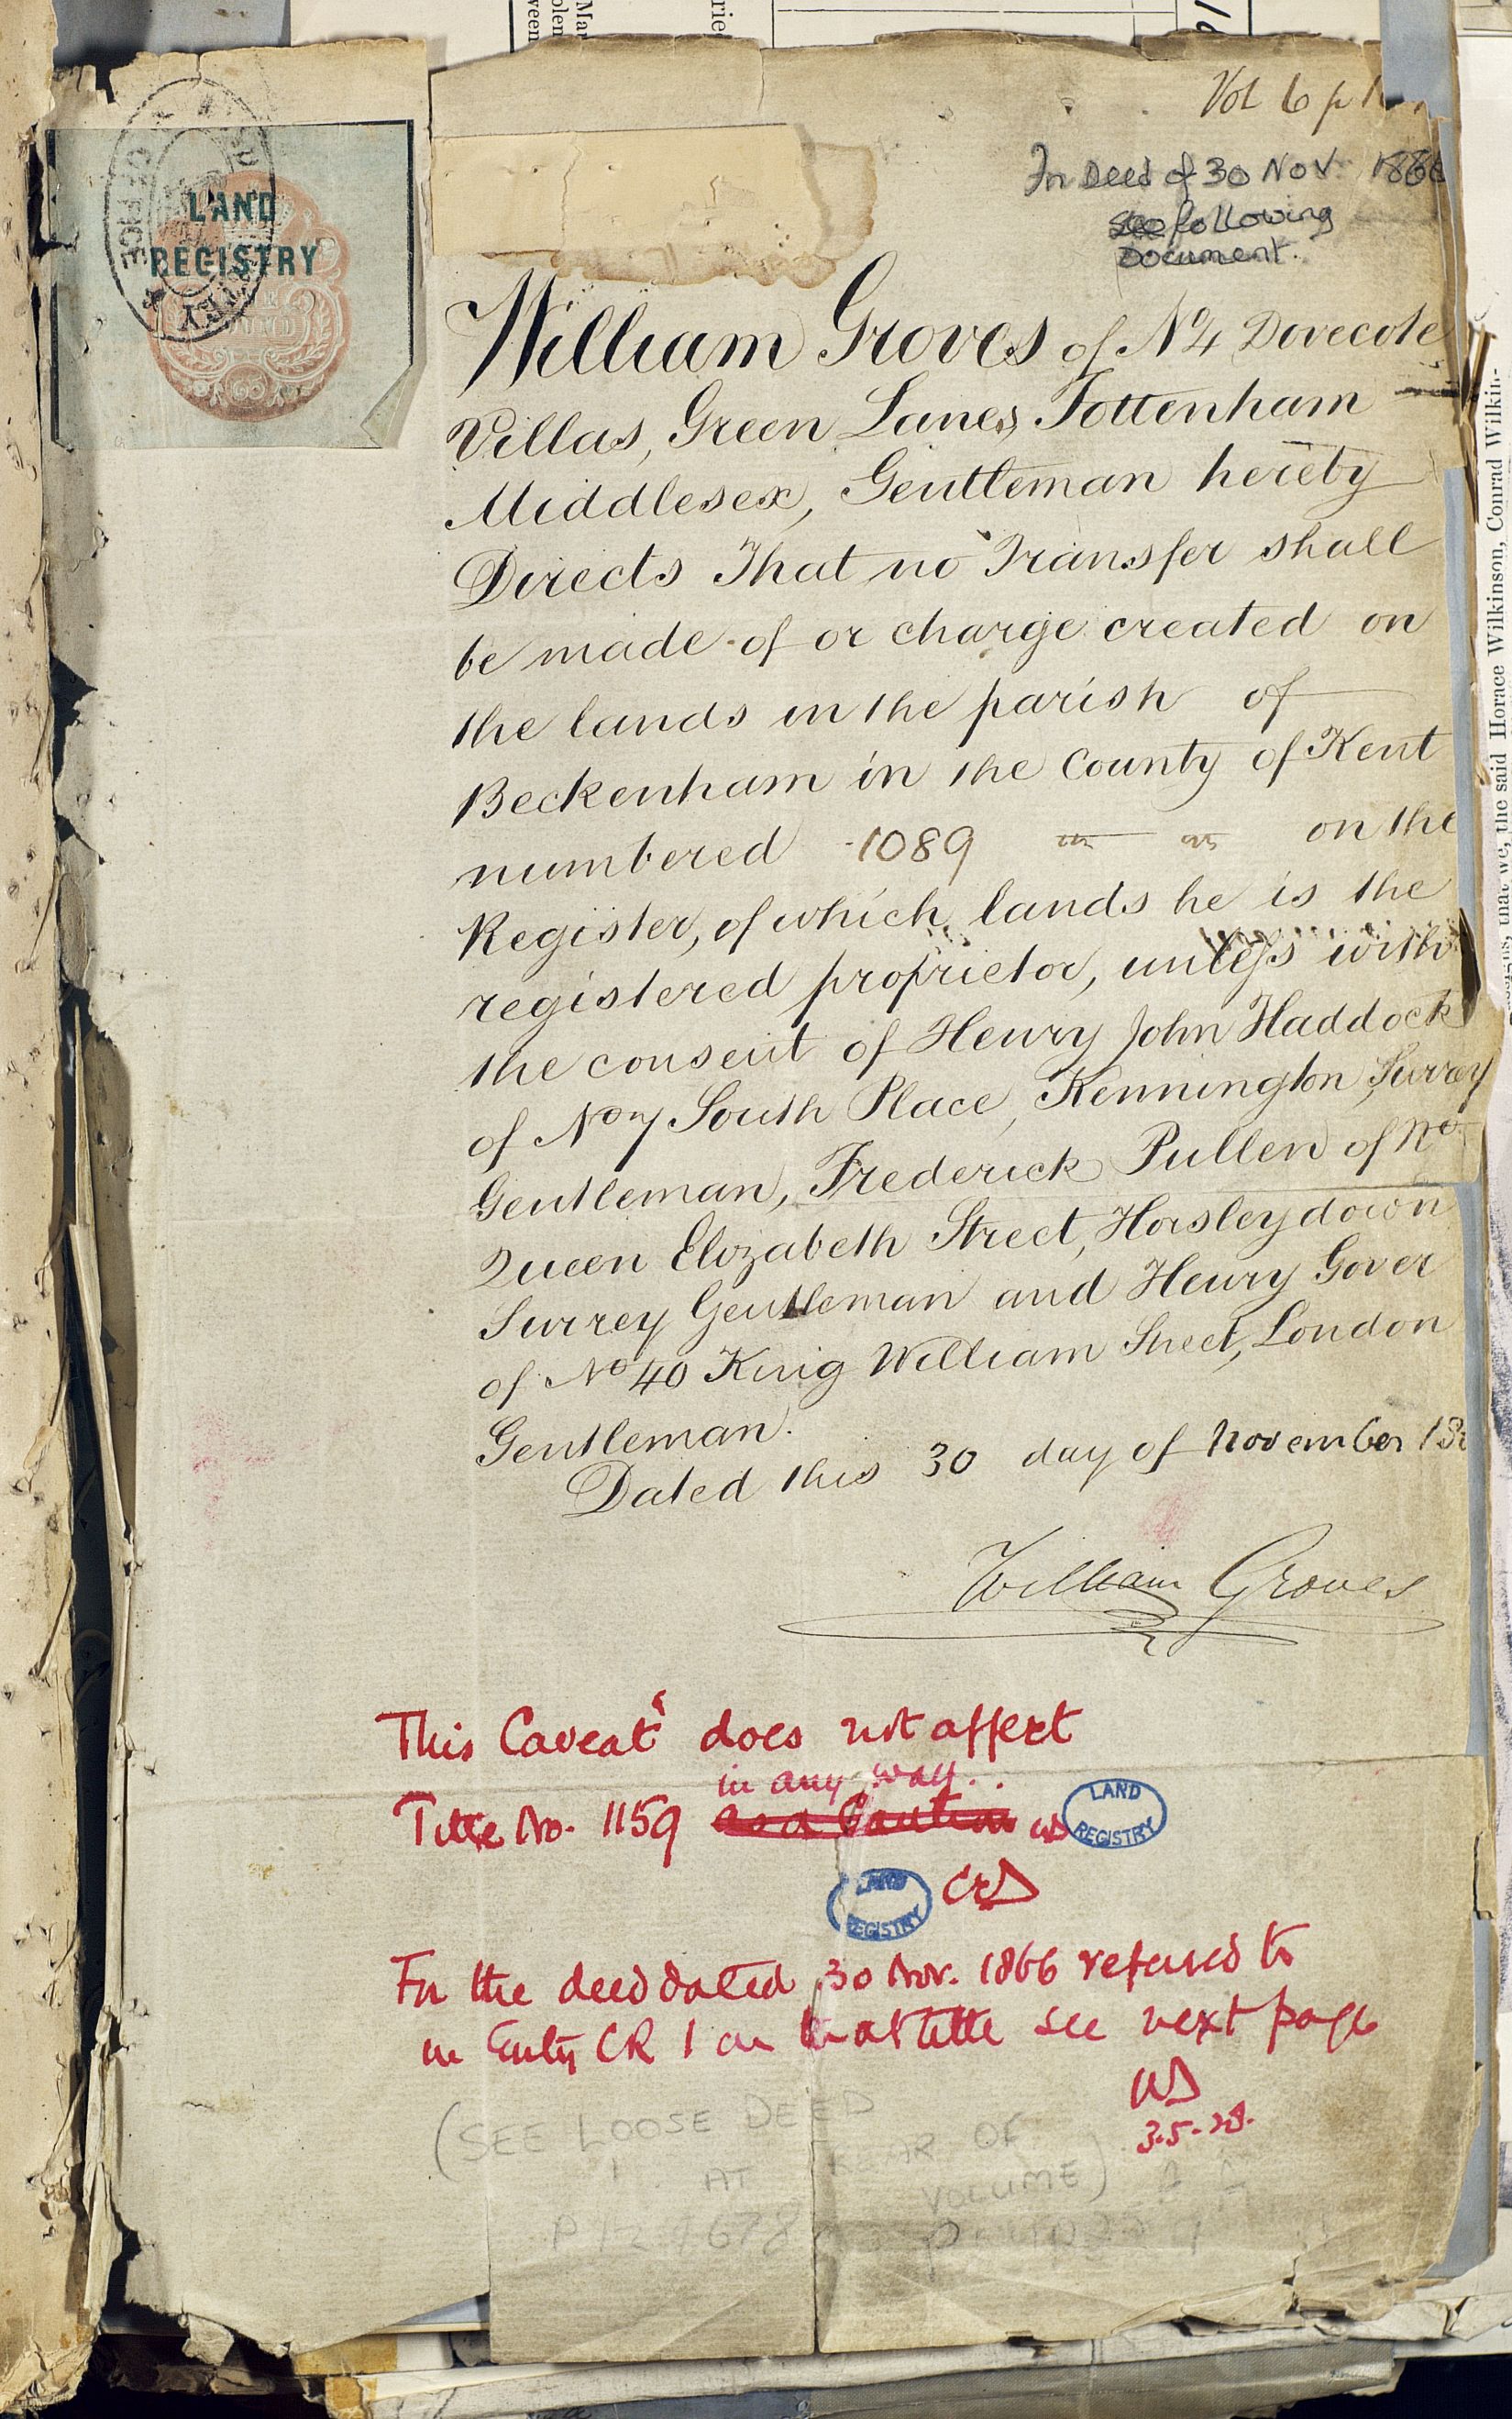 Vol 6 p
For Deed of 30 Nov 1866
see following
Document.
LAND
REGISTRY
William Groves of No 4 Dovecote
Villas, Green Lanes, Tottenham
Middlesex, Gentleman hereby
Directs That no Transfer shall
be made of or charge created on
the lands in the parish of
Beckenham in the County of Kent
numbered 1089 on the
Register, of which lands he is the
registered proprietor, unless with
the consent of Henry John Haddock
of No 7 South Place, Kennington, Surrey
Gentleman, Frederick Pullen of No
Queen Elizabeth Street, Horsleydown
Surrey Gentleman and Henry Gover
of No 40 King William Street, London
Gentleman.
Dated this 30 day of November 18
William Groves
This Caveat does not affect
in any way.
Title No. 1159 as a Caution WD
LAND
REGISTRY
LAND
REGISTRY
For the deed dated 30 Nov. 1866 referred to
in Entry CR 1 on that title see next page
WD
3.5.28.
(SEE LOOSE DEED
AT REAR OF
VOLUME)
signs, that we, the said Horace Wilkinson, Conrad Wilkin-